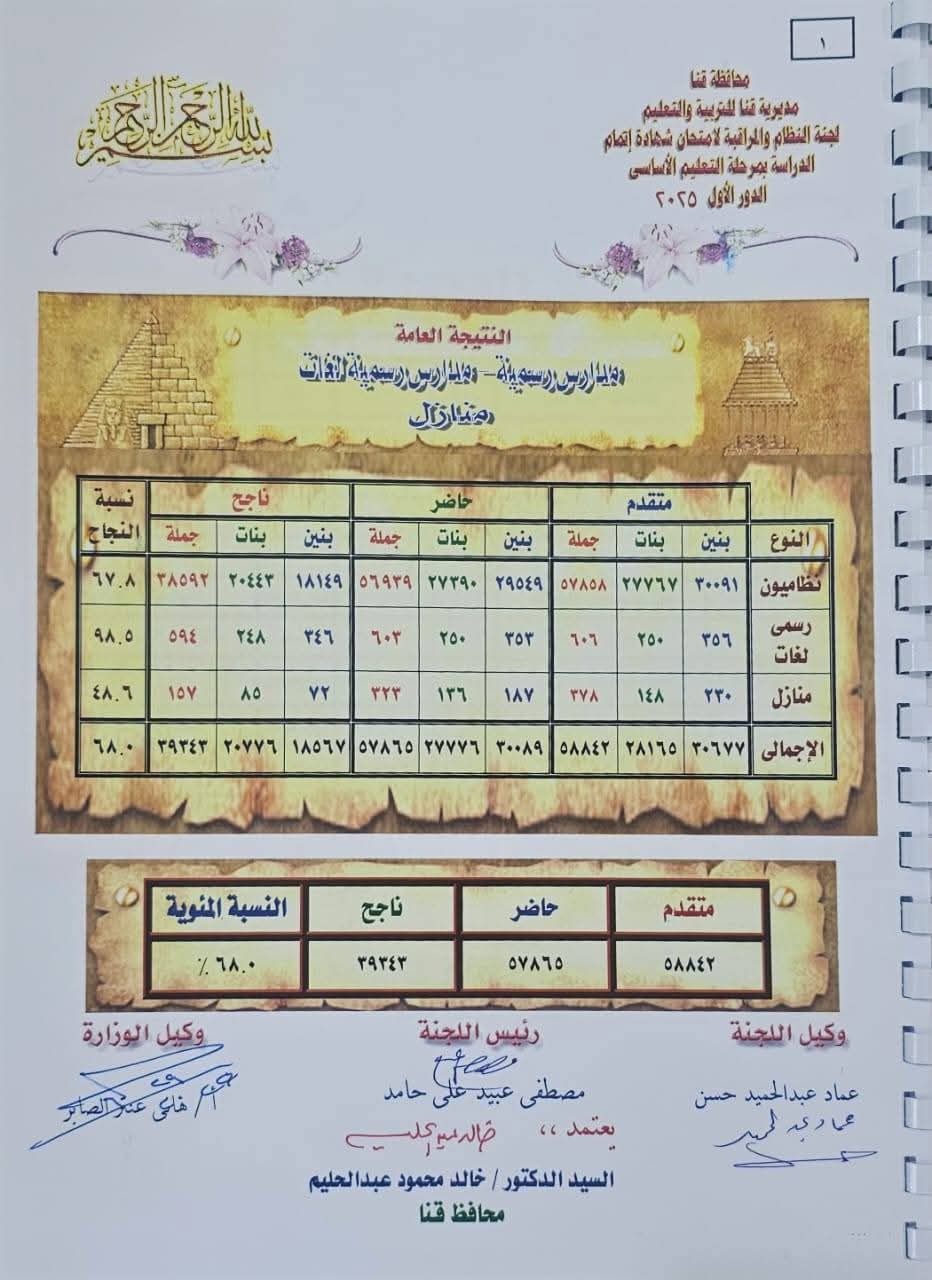 ١
محافظة قنا
مديرية قنا للتربية والتعليم
لجنة النظام والمراقبة لامتحان شهادة إتمام
الدراسة بمرحلة التعليم الأساسى
الدور الأول ٢٠٢٥
بسم الله الرحمن الرحيم
النتيجة العامة
مدارس رسمية - مدارس رسمية لغات
منازل
متقدم حاضر ناجح نسبة النجاح
النوع بنين بنات جملة بنين بنات جملة بنين بنات جملة
نظاميون ٣٠٠٩١ ٢٧٧٦٧ ٥٧٨٥٨ ٢٩٥٤٩ ٢٧٣٩٠ ٥٦٩٣٩ ١٨١٤٩ ٢٠٤٤٣ ٣٨٥٩٢ ٦٧.٨
رسمى لغات ٣٥٦ ٢٥٠ ٦٠٦ ٣٥٣ ٢٥٠ ٦٠٣ ٣٤٦ ٢٤٨ ٥٩٤ ٩٨.٥
منازل ٢٣٠ ١٤٨ ٣٧٨ ١٨٧ ١٣٦ ٣٢٣ ٧٢ ٨٥ ١٥٧ ٤٨.٦
الإجمالى ٣٠٦٧٧ ٢٨١٦٥ ٥٨٨٤٢ ٣٠٠٨٩ ٢٧٧٧٦ ٥٧٨٦٥ ١٨٥٦٧ ٢٠٧٧٦ ٣٩٣٤٣ ٦٨.٠
متقدم حاضر ناجح النسبة المئوية
٥٨٨٤٢ ٥٧٨٦٥ ٣٩٣٤٣ ٦٨.٠ ٪
وكيل اللجنة رئيس اللجنة وكيل الوزارة
عماد عبدالحميد حسن مصطفى عبيد على حامد أ/ هانى عنتر الصابر
يعتمد ،،
السيد الدكتور / خالد محمود عبدالحليم
محافظ قنا